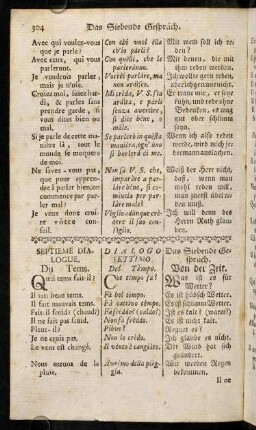 304
Das Siebende Gespräch.
Avec qui voulez-vous
que je parle?
Avec ceux, qui vous
parleront.
Je voudrois parler,
mais je n'ose.
Croiez moi, soiez har-
di, & parlez sans
prendre garde, si
vous dites bien ou
mal.
Si je parle de cette ma-
nière là, tout le
monde se moquera
de moi.
Ne savez-vous pas,
que pour apprendre
à parler bien, on
commence par par-
ler mal?
Je veux donc croire
vôtre conseil.
SEPTIEME DIA-
LOGUE,
Du Tems.
Quel tems fait-il?
Il fait beau tems.
Il fait mauvais tems.
Fait-il froid? (chaud)
Il ne fait pas froid.
Pleut-il?
Je ne crois pas.
Le vent est changé.
Nous aurons de la
pluie.
Con chi vuol ella
ch'io parli?
Con quelli, che le
parleranno.
Vorrei parlare, ma
non ardisco.
Mi creda, V. S. sia
ardita, e parli
senza avvertire,
si dice bene, ò
male.
Se parlerò in questa
maniera, ogn' uno
si burlerà di me.
Non sa V. S. che,
imparare a par-
lar bene, si co-
mincia per par-
lare male?
Voglio adunque credere
il suo con-
siglio.
DIALOGO
SETTIMO.
Del Tempo.
Che tempo fa?
Fà bel tempo.
Fà cattivo tempo.
Fa freddo? (caldo)
Non fà freddo.
Piove?
Non lo credo.
Il vento è cangiato.
Avremo della piog-
gia.
Mit wem soll ich re-
den?
Mit denen, die mit
ihm reden werden.
Ich wollte gern reden,
aber
Er traue mir, er seye
kühn, und rede ohne
Bedencken, ob er
wohl oder übel re-
de.
Wenn ich also reden
werde, wird mich je-
dermann auslachen.
Weiß der Herr nicht,
daß, wenn man
wohl reden will,
man zuerst übel re-
den muß?
Ich will denn des
Herrn Rath glau-
ben.
Das Siebende Ge-
spräch.
Von der Zeit.
Was ist es für
Wetter?
Es ist hübsch Wetter.
Es ist schlimm Wetter.
Ist es kalt? (warm?)
Es ist nicht kalt.
Regnet es?
Ich glaube es nicht.
Der Wind hat sich
geändert.
Wir werden Regen
bekommen.
Il ne